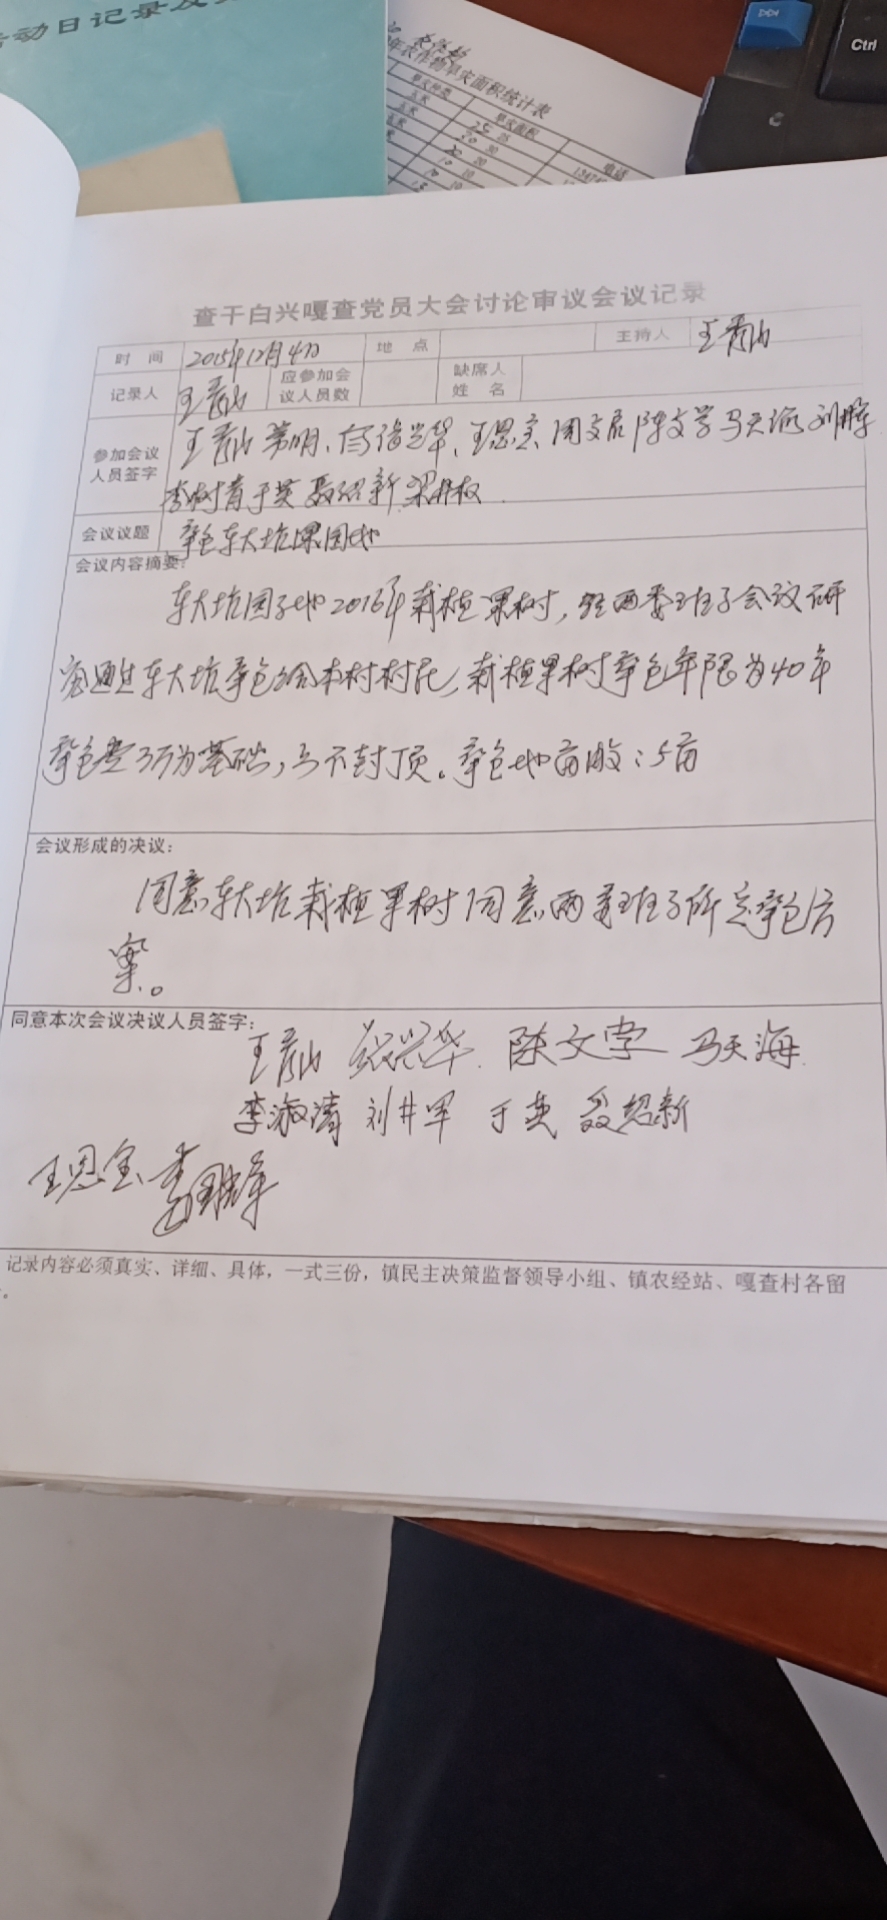 活动日记录及
年农作物旱灾面积统计表
旱灾面积
电话
Ctrl
查干白兴嘎查党员大会讨论审议会议记录
时 间 2015年12月4日 地 点 主持人 王青山
记录人 王青山 应参加会议人员数 缺席人姓名
参加会议人员签字 王青山 王思宝 陈文学 马天海
于英 聂绍新
会议议题 承包东大坑果园地
会议内容摘要：
东大坑园子地2016年栽植果树，经两委班子会议研
究通过东大坑承包给本村村民，栽植果树承包年限为40年
承包费3万为基础，上不封顶。承包地亩数：5亩
会议形成的决议：
同意东大坑栽植果树同意两委班子所定承包方
案。
同意本次会议决议人员签字：
王青山 陈文学 马天海
李淑清 刘井军 于英 聂绍新
王思宝
记录内容必须真实、详细、具体，一式三份，镇民主决策监督领导小组、镇农经站、嘎查村各留